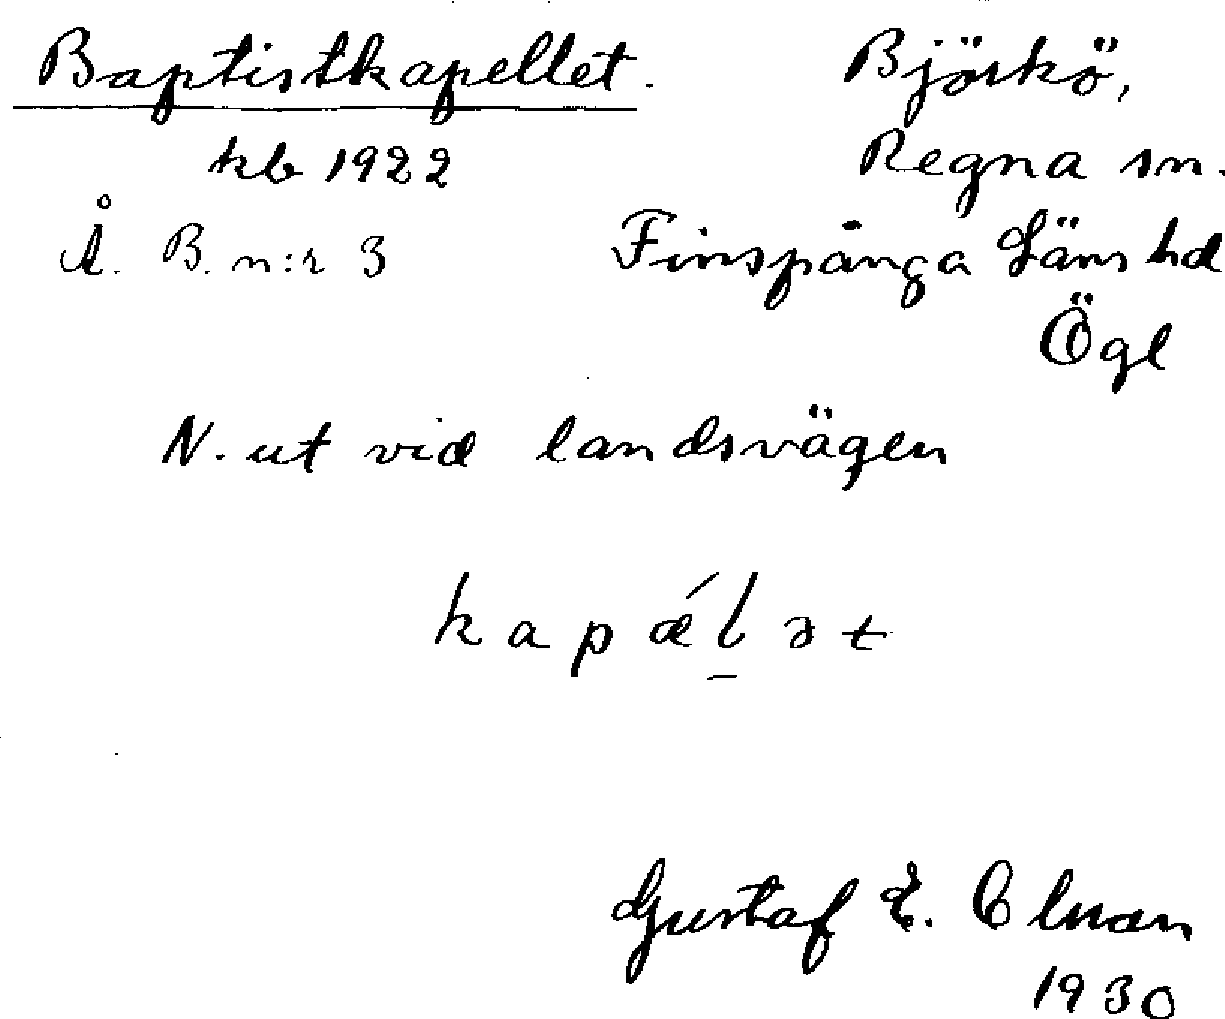 Baptistkapellet. Björkö,
kb 1922 Regna sn.
Å. B. n:r 3 Finspånga Läns hd
Ögl
N. ut vid landsvägen
kapǽl̲ət
Gustaf E.
1930